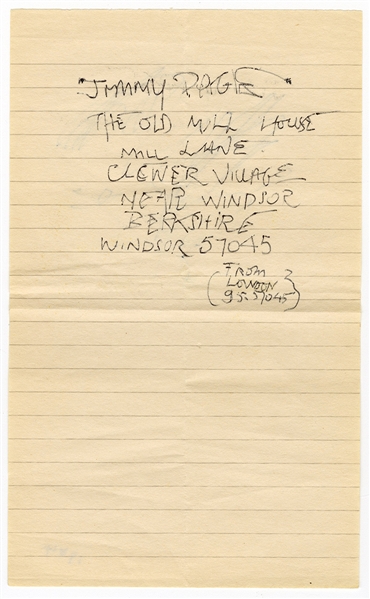 "JIMMY PAGE"
THE OLD MILL HOUSE
MILL LANE.
CLEWER VILLAGE
NEAR WINDSOR
BERKSHIRE
WINDSOR 57045
(FROM
LONDON
95.57045)